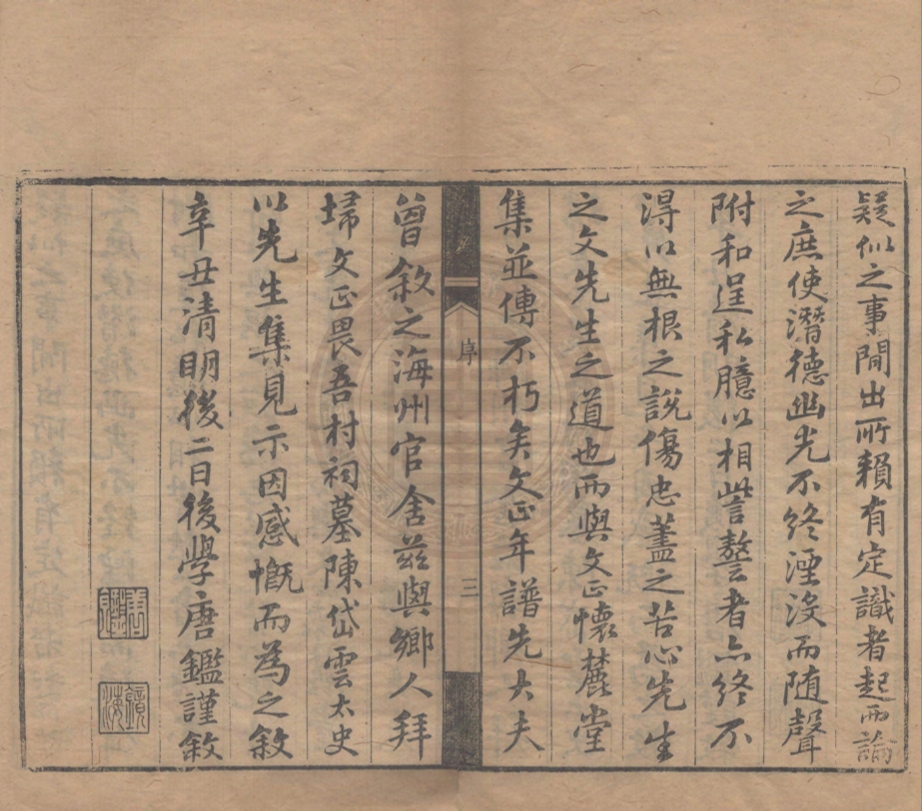 疑似之事間出所賴有定識者起而論
之庶使潛德幽光不終湮沒而随聲
附和逞私臆以相訾謷者亦終不
得以無根之說傷忠藎之苦心先生
之文先生之道也而與文正懷麓堂
集並傳不朽矣文正年譜先大夫
序
三
曾敘之海州官舍茲與鄉人拜
埽文正畏吾村祠墓陳岱雲太史
以先生集見示因感慨而為之敘
辛丑清明後二日後學唐鑑謹敘
唐鑑
鏡海